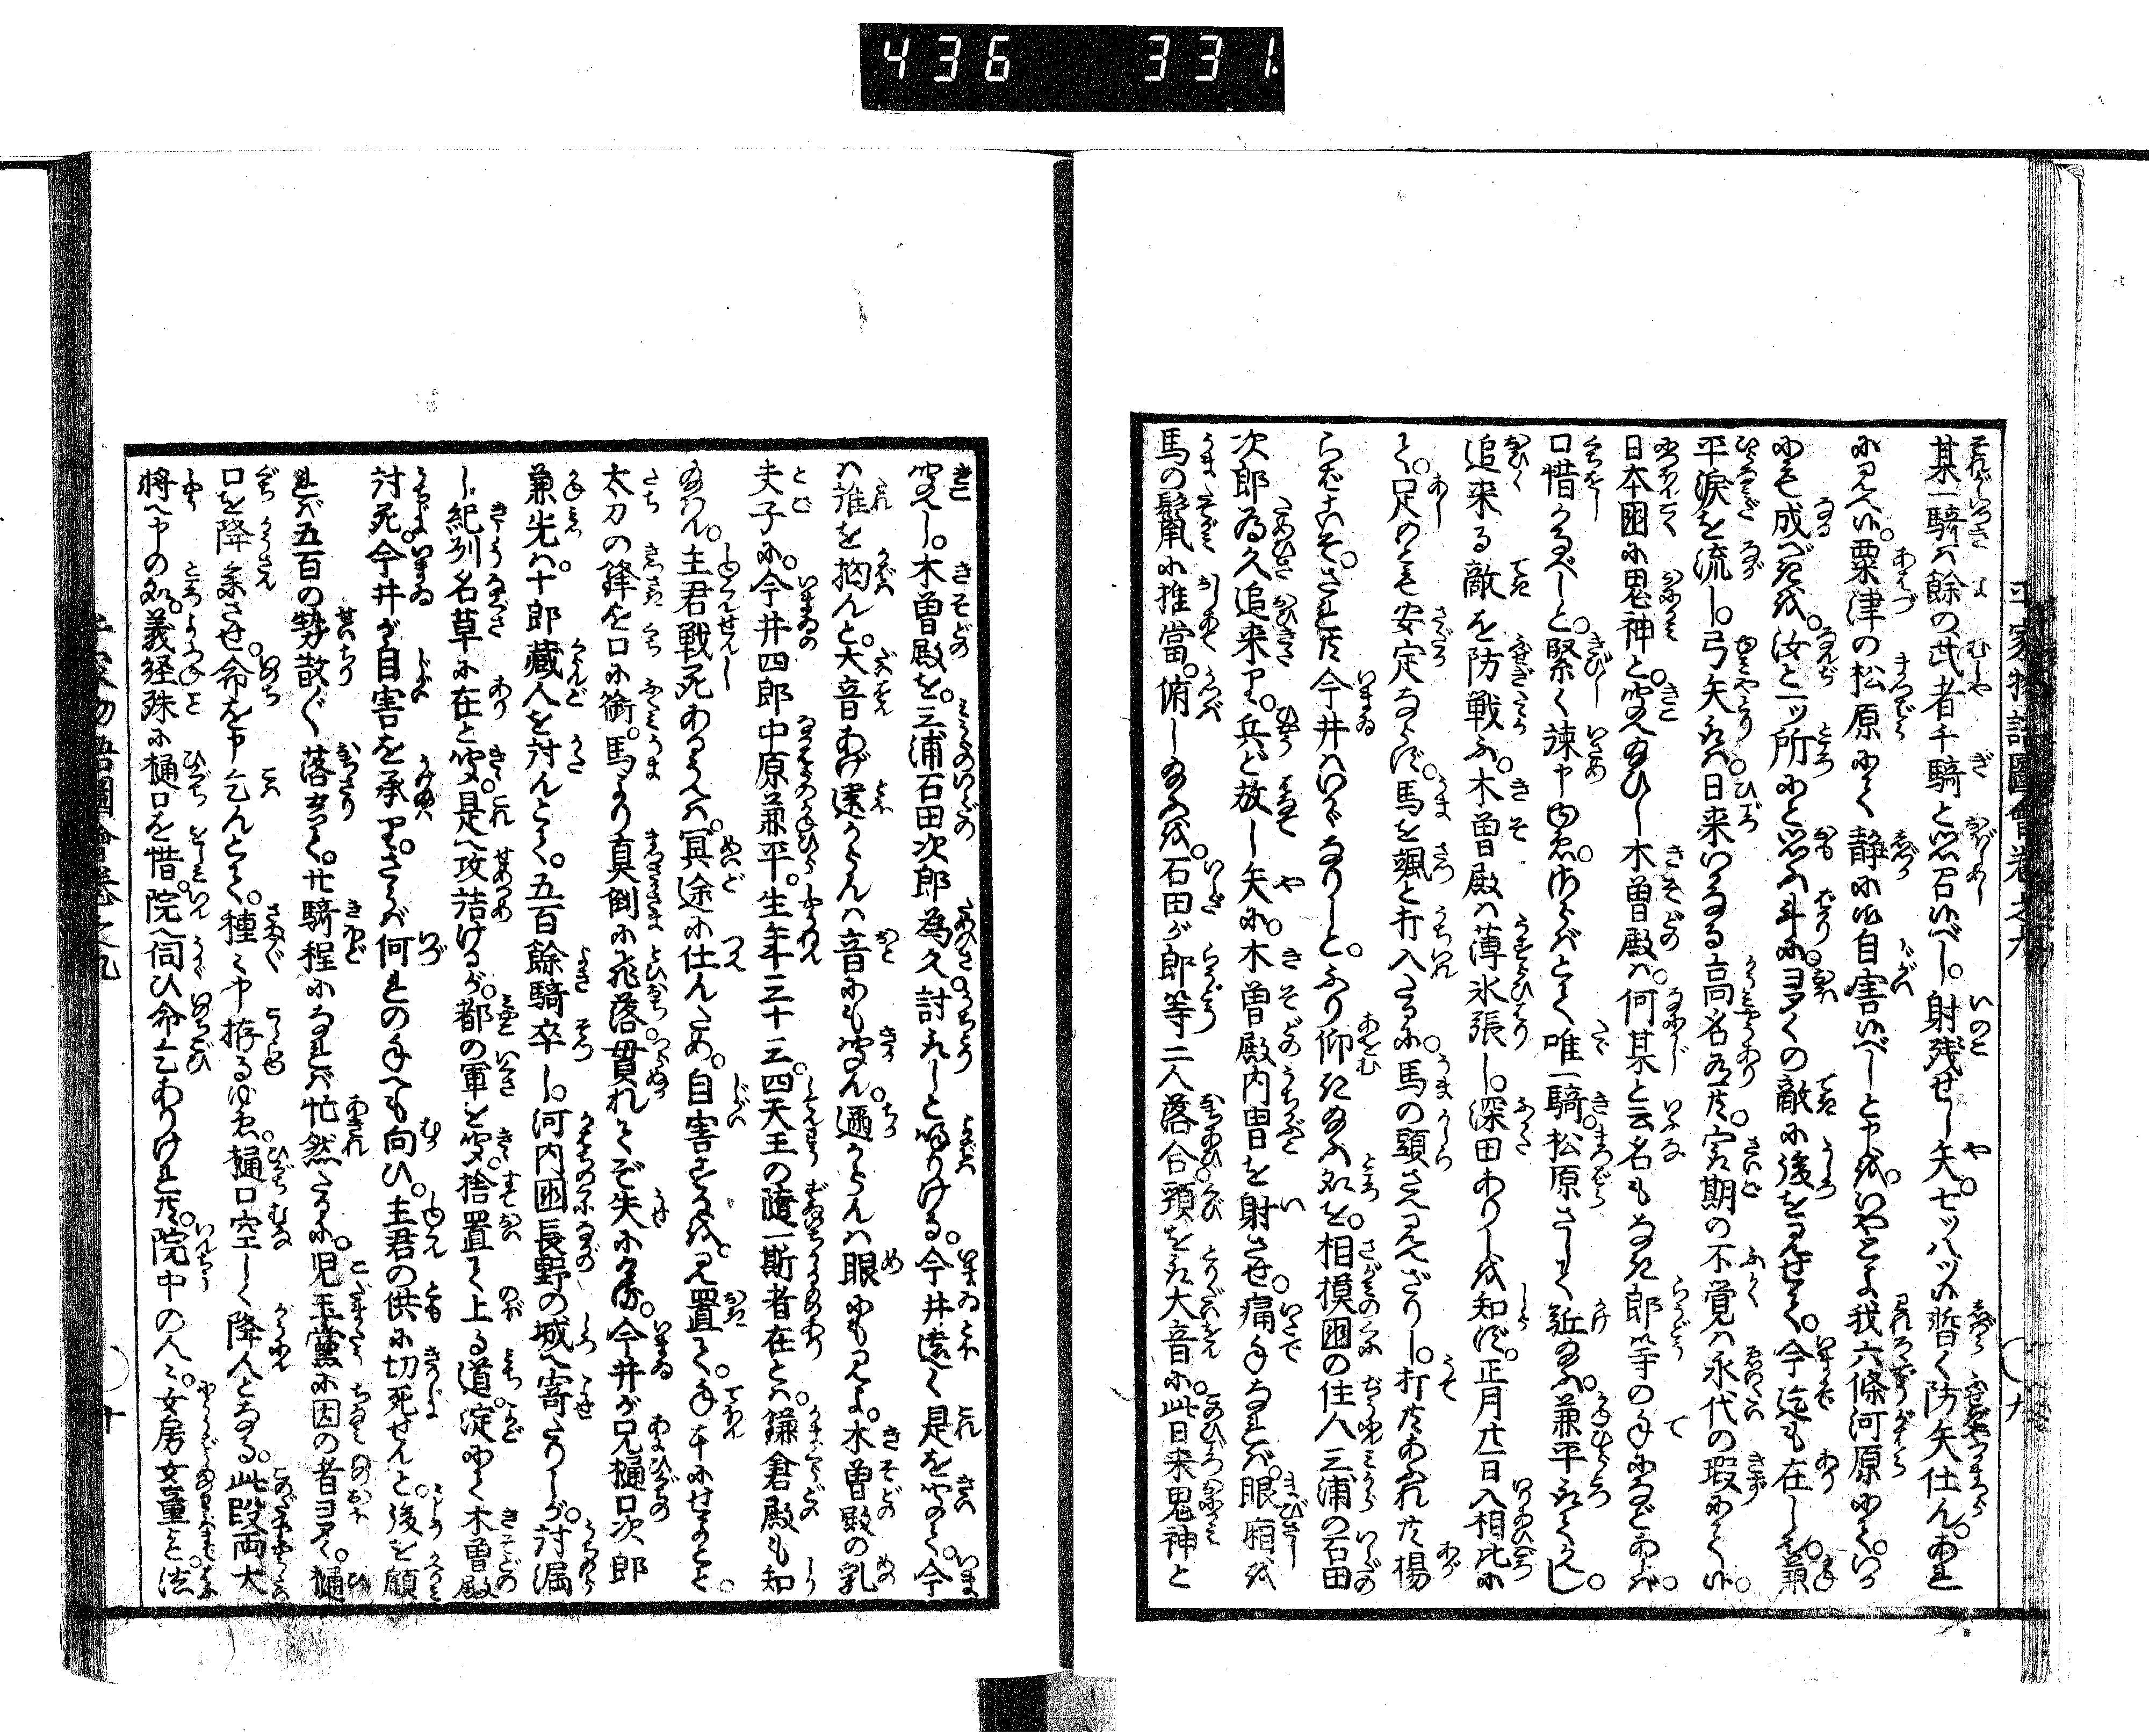 436 331
平家物語圖會巻之九
某一騎ハ餘の武者千騎と思召候べし。射残せし矢。七ッ八ッ候。暫く防矢仕ん。あれ
に見へ候。粟津の松原にて静に御自害候べしと申せば。いやとよ我六條河原にて。いか
にも成べきを。汝と一ッ所にと思ふ斗に。多くの敵に後を見せて。今迄も在しぞ。兼
平涙を流し。弓矢取は日来いかなる高名候共。最期の不覚ハ永代の瑕にて候。
日本国に鬼神と。聞へ給ひし木曽殿ハ。何某と云名もなき郎等の手になどあらば。
口惜かるべしと。緊く諫申ゆゑ。さらばとて唯一騎。松原さして赴給ふ。兼平取て返し。
追来る敵を防戦ふ。木曽殿ハ薄氷張し。深田ありしを知ず。正月廿一日入相比に
て。足のとも安定ならず。馬を颯と打入たるに。馬の頭さえ見えざりし。打共あふれ共揚
らざこそ。され共今井ハいかゞなりしと。ふり仰き給ふ処を。相模国の住人三浦の石田
次郎為久追来り。兵ど放し矢に。木曽殿内冑を射させ。痛手なれば。眼廂を
馬の鬣に推當。俯し給ふを。石田が郎等二人落合頸を取大音に此日来鬼神と
聞へし。木曽殿を。三浦石田次郎為久討取しと呼りける。今井遠く是を聞て。今
ハ誰を抅んと。大音あげ遠からん人ハ音にも聞ん。近からん人ハ眼にも見よ。木曽殿の乳
夫子に。今井四郎中原兼平。生年三十三。四天王の随一斯者在とハ。鎌倉殿も知
給ハん。主君戦死あるうへハ。冥途に仕んため。自害するを見置て。手本にせよと
太刀の鋒を口に銜。馬より真倒に飛落貫れてぞ失にけり。今井が兄樋口次郎
兼光ハ。十郎蔵人を討んとて。五百餘騎卒し。河内国長野の城へ寄たりしが。討漏
し。紀刕名草に在と聞。是へ攻詰けるが。都の軍と聞。捨置て上る道。淀にて木曽殿
討死。今井が自害を承り。さらば何れの手へも向ひ。主君の供に切死せんと。後を顧
れバ五百の勢散ぐ落うせて。廿騎程になれば忙然たるに。児玉黨に因の者多く。樋
口を降参させ。命を申乞んとて。種〻申拵るゆゑ。樋口空しく降人となる。此段両大
将へ申の処。義経殊に樋口を惜。院へ伺ひ命乞ありけれ共。院中の人〻。女房女童迄。法
平家物語圖會巻之九